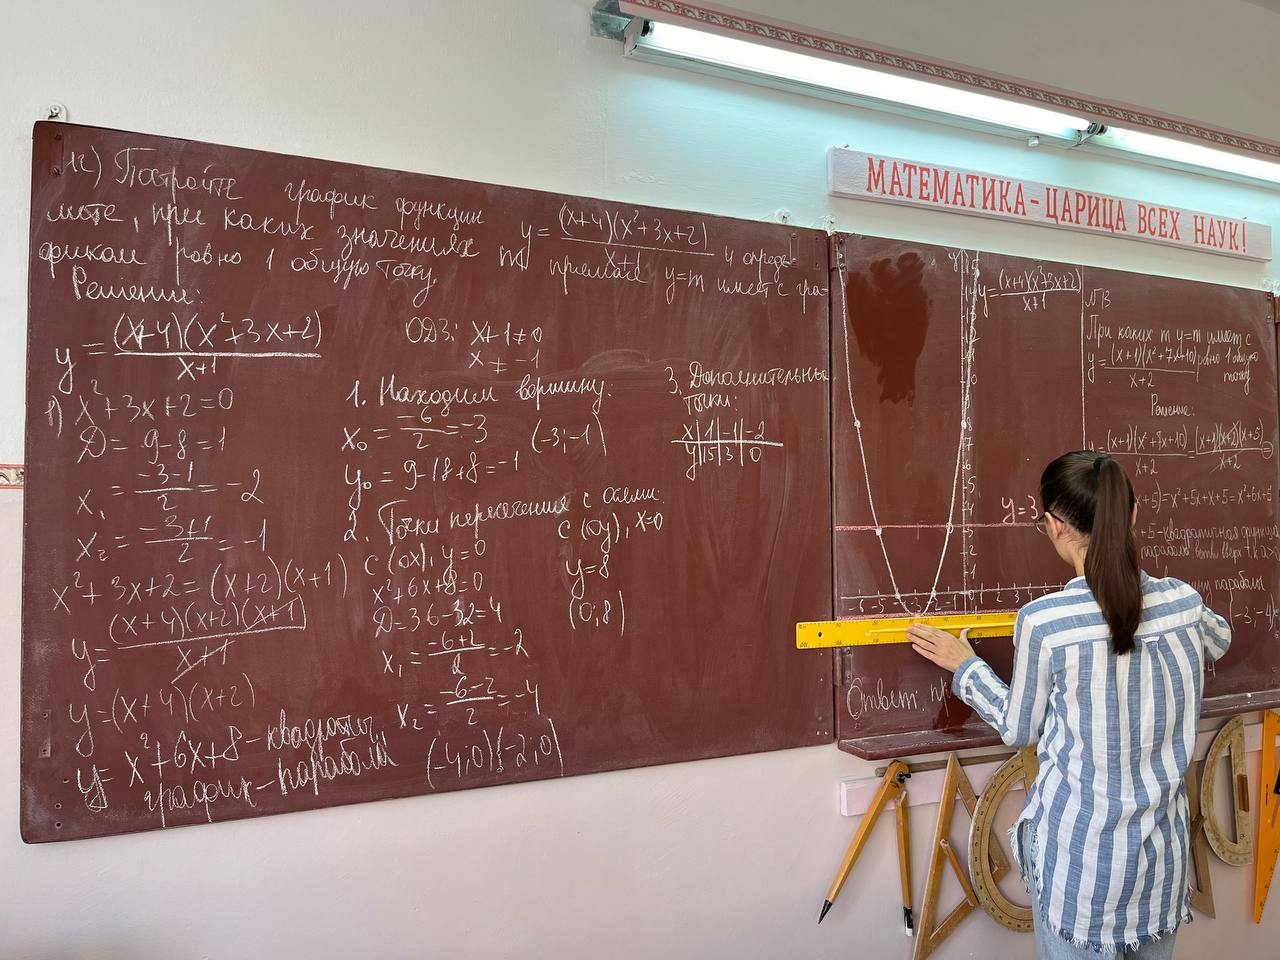 МАТЕМАТИКА - ЦАРИЦА ВСЕХ НАУК!
12) Постройте график функции y = (x+4)(x²+3x+2)/(x+1) и опреде-
лите, при каких значениях m прямая y=m имеет с гра-
фиком ровно 1 общую точку.
Решение:
y = (x+4)(x²+3x+2)/(x+1)
ОДЗ: x+1≠0
x ≠ -1
1) x²+3x+2=0
D = 9-8=1
x₁ = (-3-1)/2 = -2
x₂ = (-3+1)/2 = -1
x²+3x+2=(x+2)(x+1)
y = (x+4)(x+2)(x+1)/(x+1)
y=(x+4)(x+2)
y = x²+6x+8 - квадратич.
график - парабола
1. Находим вершину.
x₀ = -6/2 = -3
(-3;-1)
y₀ = 9-18+8=-1
2. Точки пересечения с осями.
с (ox), y=0
x²+6x+8=0
D=36-32=4
x₁ = (-6+2)/2 = -2
x₂ = (-6-2)/2 = -4
(-4;0)(-2;0)
с (oy), x=0
y=8
(0;8)
3. Дополнительные
точки:
x | 1 | -1 | -2
y | 15 | 3 | 0
y = (x+4)(x²+3x+2)/(x+1)
y=3
Ответ: пр
№13
При каких m y=m имеет с
y = (x+1)(x²+7x+10)/(x+2) ровно 1 общую
точку
Решение:
(x+1)(x²+7x+10)/(x+2) = (x+1)(x+2)(x+5)/(x+2) =
x+5)=x²+5x+x+5=x²+6x+5
+5-квадратичная функция
парабола, ветви вверх
параболы
(-3;-4)